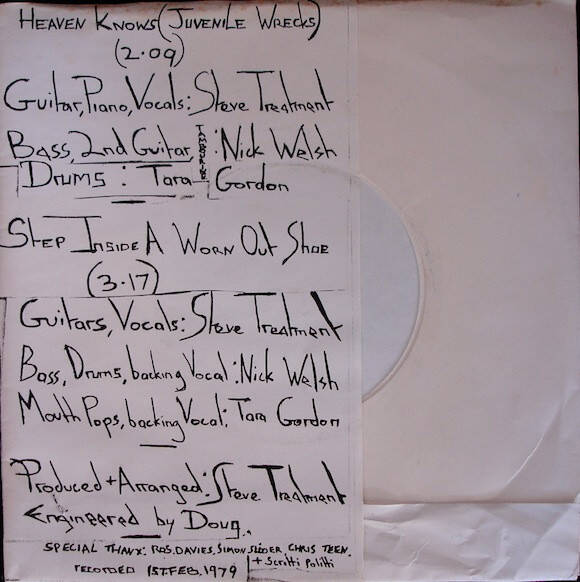 HEAVEN KNOWS (JUVENILE WRECKS)
(2·09)
Guitar, Piano, Vocals: Steve Treatment
Bass, 2nd Guitar, TAMBOURINE : Nick Welsh
Drums : Tara Gordon
STEP INSIDE A WORN OUT SHOE
(3·17)
Guitars, Vocals: Steve Treatment
Bass, Drums, backing Vocal: Nick Welsh
Mouth Pops, backing Vocal: Tara Gordon
Produced + Arranged: Steve Treatment
Engineered by Doug.
SPECIAL THANX: ROS. DAVIES, SIMON SLIDER CHRIS TEEN.
+ Scritti Politti
RECORDED 1ST. FEB. 1979